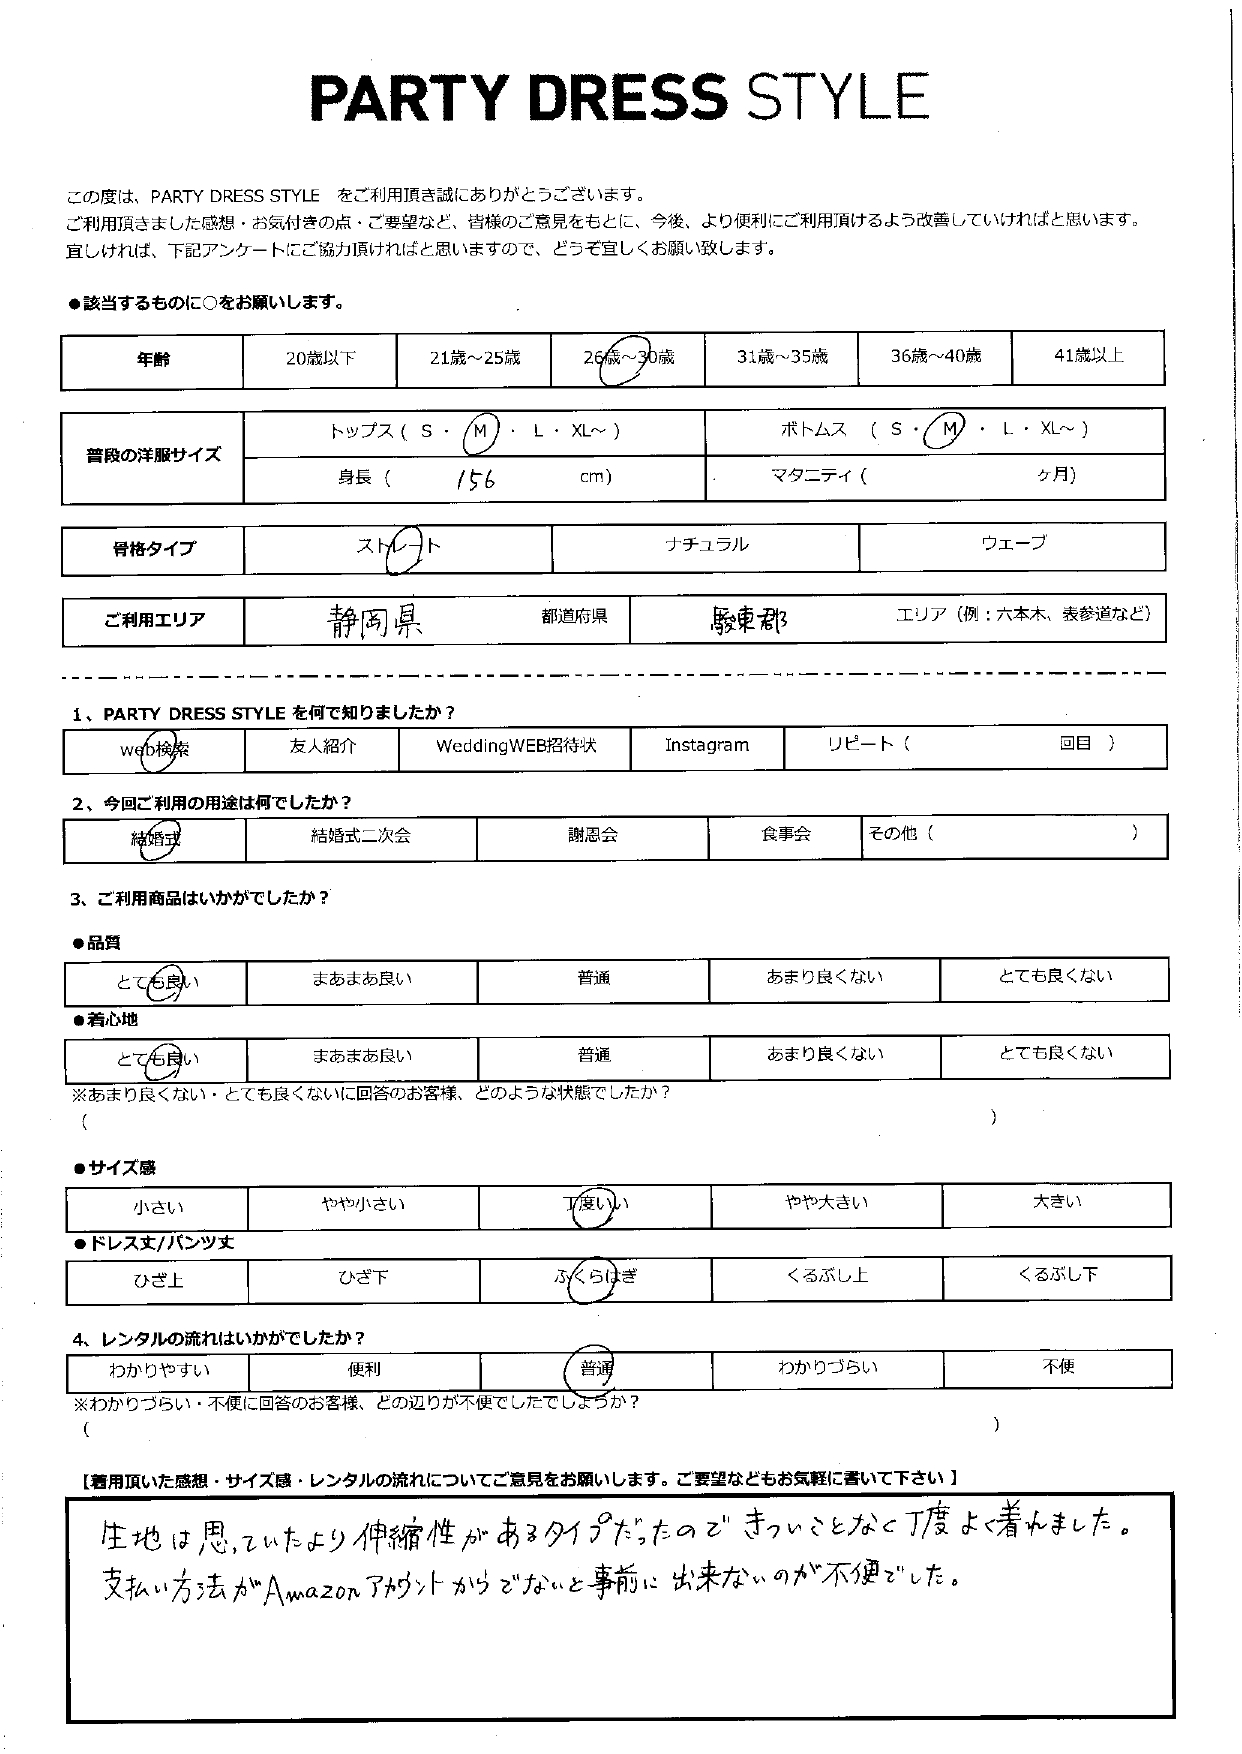 PARTY DRESS STYLE
この度は、PARTY DRESS STYLE　をご利用頂き誠にありがとうございます。
ご利用頂きました感想・お気付きの点・ご要望など、皆様のご意見をもとに、今後、より便利にご利用頂けるよう改善していければと思います。
宜しければ、下記アンケートにご協力頂ければと思いますので、どうぞ宜しくお願い致します。
●該当するものに○をお願いします。
年齢 20歳以下 21歳～25歳 26歳～30歳 31歳～35歳 36歳～40歳 41歳以上
普段の洋服サイズ
トップス ( S ・ M ・ L ・ XL～ ) ボトムス ( S ・ M ・ L ・ XL～ )
身長 ( 156 cm) マタニティ ( ヶ月)
骨格タイプ ストレート ナチュラル ウェーブ
ご利用エリア 静岡県 都道府県 駿東郡 エリア（例：六本木、表参道など）
1、PARTY DRESS STYLE を何で知りましたか？
web検索 友人紹介 WeddingWEB招待状 Instagram リピート ( 回目 )
2、今回ご利用の用途は何でしたか？
結婚式 結婚式二次会 謝恩会 食事会 その他 ( )
3、ご利用商品はいかがでしたか？
●品質
とても良い まあまあ良い 普通 あまり良くない とても良くない
●着心地
とても良い まあまあ良い 普通 あまり良くない とても良くない
※あまり良くない・とても良くないに回答のお客様、どのような状態でしたか？
( )
●サイズ感
小さい やや小さい 丁度いい やや大きい 大きい
●ドレス丈/パンツ丈
ひざ上 ひざ下 ふくらはぎ くるぶし上 くるぶし下
4、レンタルの流れはいかがでしたか？
わかりやすい 便利 普通 わかりづらい 不便
※わかりづらい・不便に回答のお客様、どの辺りが不便でしたでしょうか？
( )
【着用頂いた感想・サイズ感・レンタルの流れについてご意見をお願いします。ご要望などもお気軽に書いて下さい 】
生地は思っていたより伸縮性があるタイプだったので きついことなく丁度よく着れました。
支払い方法がAmazonアカウントからでないと事前に出来ないのが不便でした。